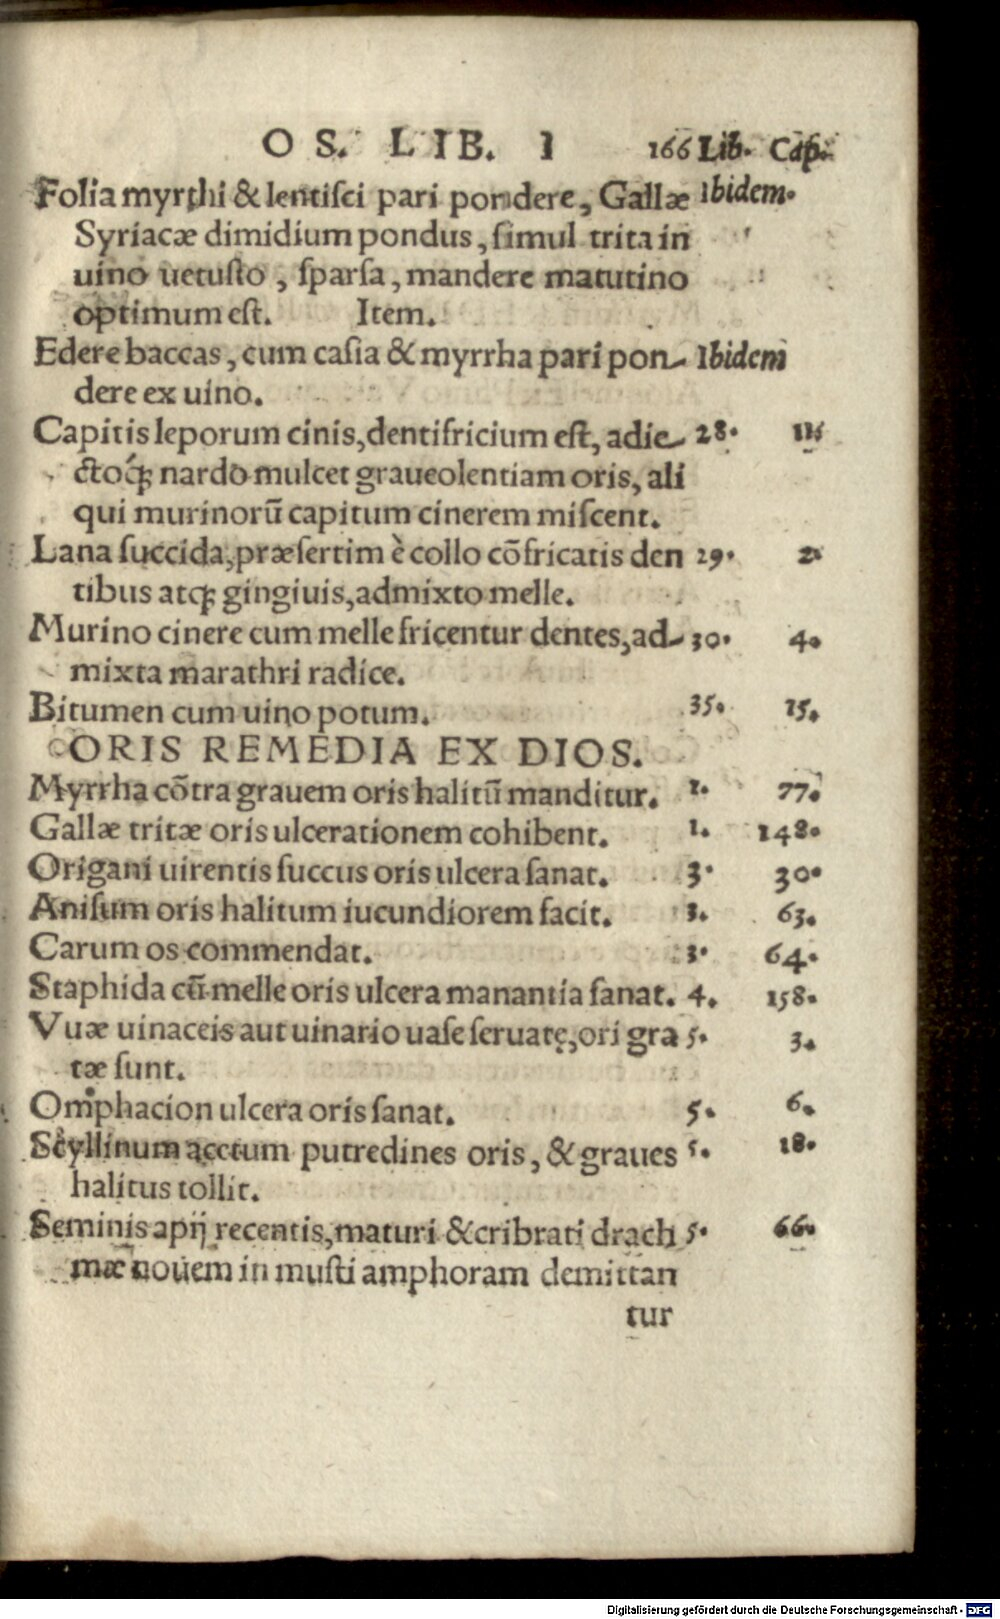 OS. LIB. I 166 Lib. Cap.
Folia myrthi & lentisci pari pondere, Gallæ Ibidem.
Syriacæ dimidium pondus, simul trita in
uino uetusto, sparsa, mandere matutino
optimum est. Item.
Edere baccas, cum casia & myrrha pari pon- Ibidem
dere ex uino.
Capitis leporum cinis, dentifricium est, adie- 28. 11.
ctoq́; nardo mulcet graueolentiam oris, ali
qui murinorū capitum cinerem miscent.
Lana succida, præsertim è collo cōfricatis den 29. 2.
tibus atq; gingiuis, admixto melle.
Murino cinere cum melle fricentur dentes, ad- 30. 4.
mixta marathri radice.
Bitumen cum uino potum. 35. 15.
ORIS REMEDIA EX DIOS.
Myrrha cōtra grauem oris halitū manditur. 1. 77.
Gallæ tritæ oris ulcerationem cohibent. 1. 148.
Origani uirentis succus oris ulcera sanat. 3. 30.
Anisum oris halitum iucundiorem facit. 3. 63.
Carum os commendat. 3. 64.
Staphida cū melle oris ulcera manantia sanat. 4. 158.
Vuæ uinaceis aut uinario uase seruatę, ori gra 5. 3.
tæ sunt.
Omphacion ulcera oris sanat. 5. 6.
Scyllinum acetum putredines oris, & graues 5. 18.
halitus tollit.
Seminis apij recentis, maturi & cribrati drach 5. 66.
mæ nouem in musti amphoram demittan
tur
Digitalisierung gefördert durch die Deutsche Forschungsgemeinschaft - DFG